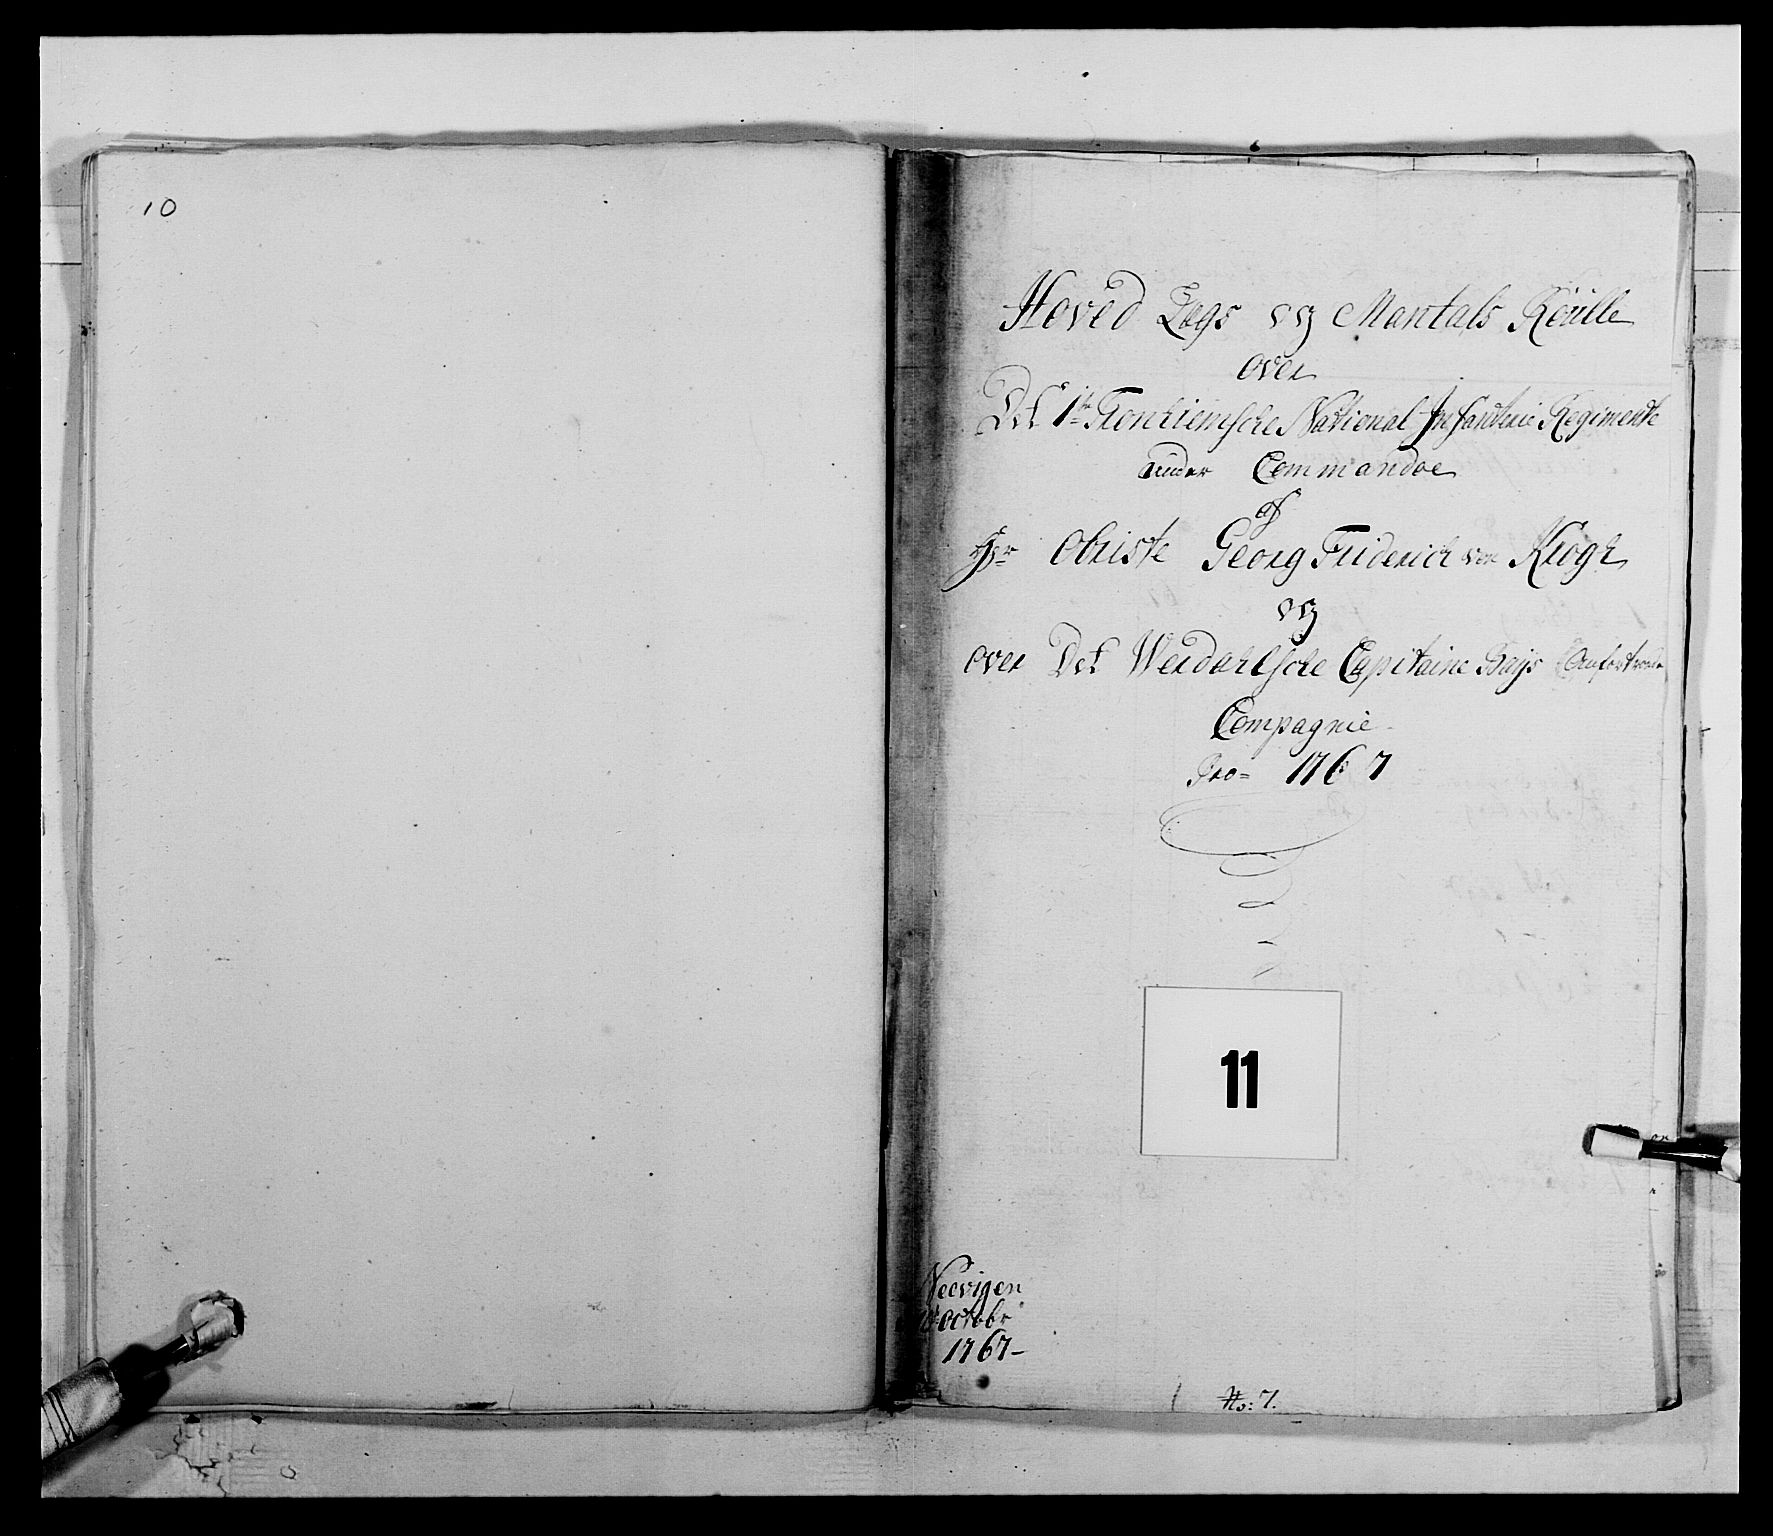 10
Hoved Lægs og Mantals Roulle
over
Det 1te Tronhiemsche National Infanterie Regimente
under Commandoe
af
Hr Obriste Georg Friderich von Krogh
og
over Det Werdahlsche Capitaine Bays
Compagnie
Pro= 1767
11
octobr
1767–
No: 7.